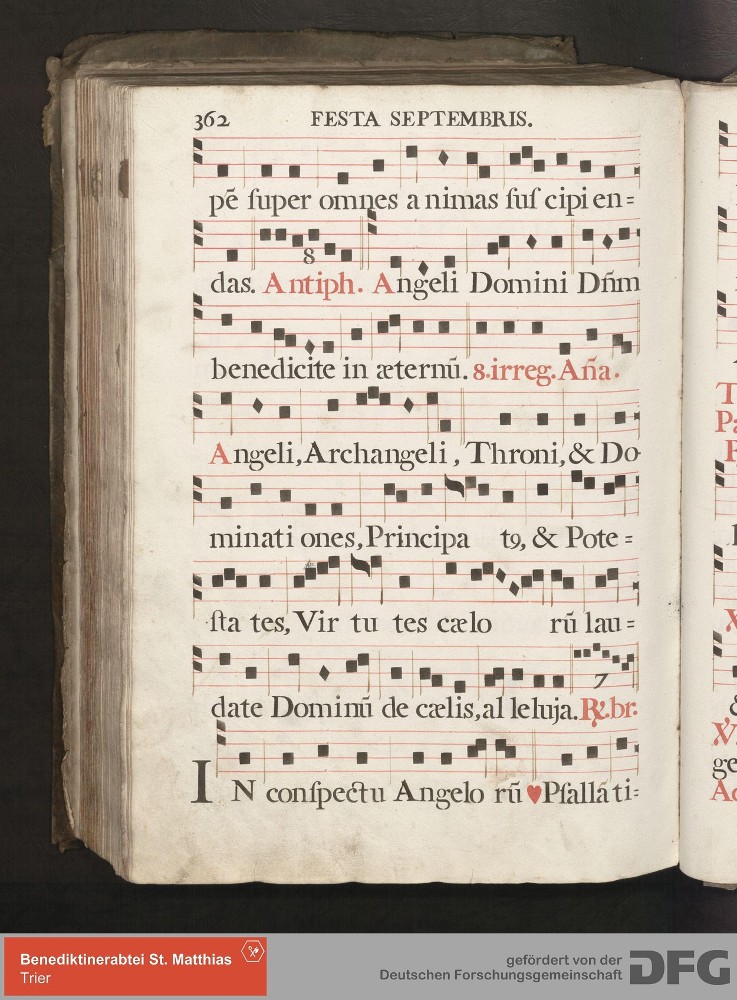 362 FESTA SEPTEMBRIS.
pē ſuper omnes a nimas ſuſ cipi en=
8
das. Antiph. Angeli Domini Dn̄m
benedicite in æternū. 8. irreg. Aña.
Angeli, Archangeli, Throni, & Do-
minati ones, Principa tꝰ, & Pote=
ſta tes, Vir tu tes cælo rū lau=
7
date Dominū de cælis, al leluja. ℟. br.
IN conſpectu Angelo rū ♥ Pſallā ti=
T
Pa
ge
Ac
Benediktinerabtei St. Matthias
Trier
gefördert von der
Deutschen Forschungsgemeinschaft
DFG